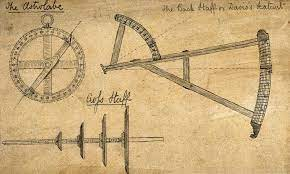 The Astrolabe
The Back Staff or Davis's
Cross Staff